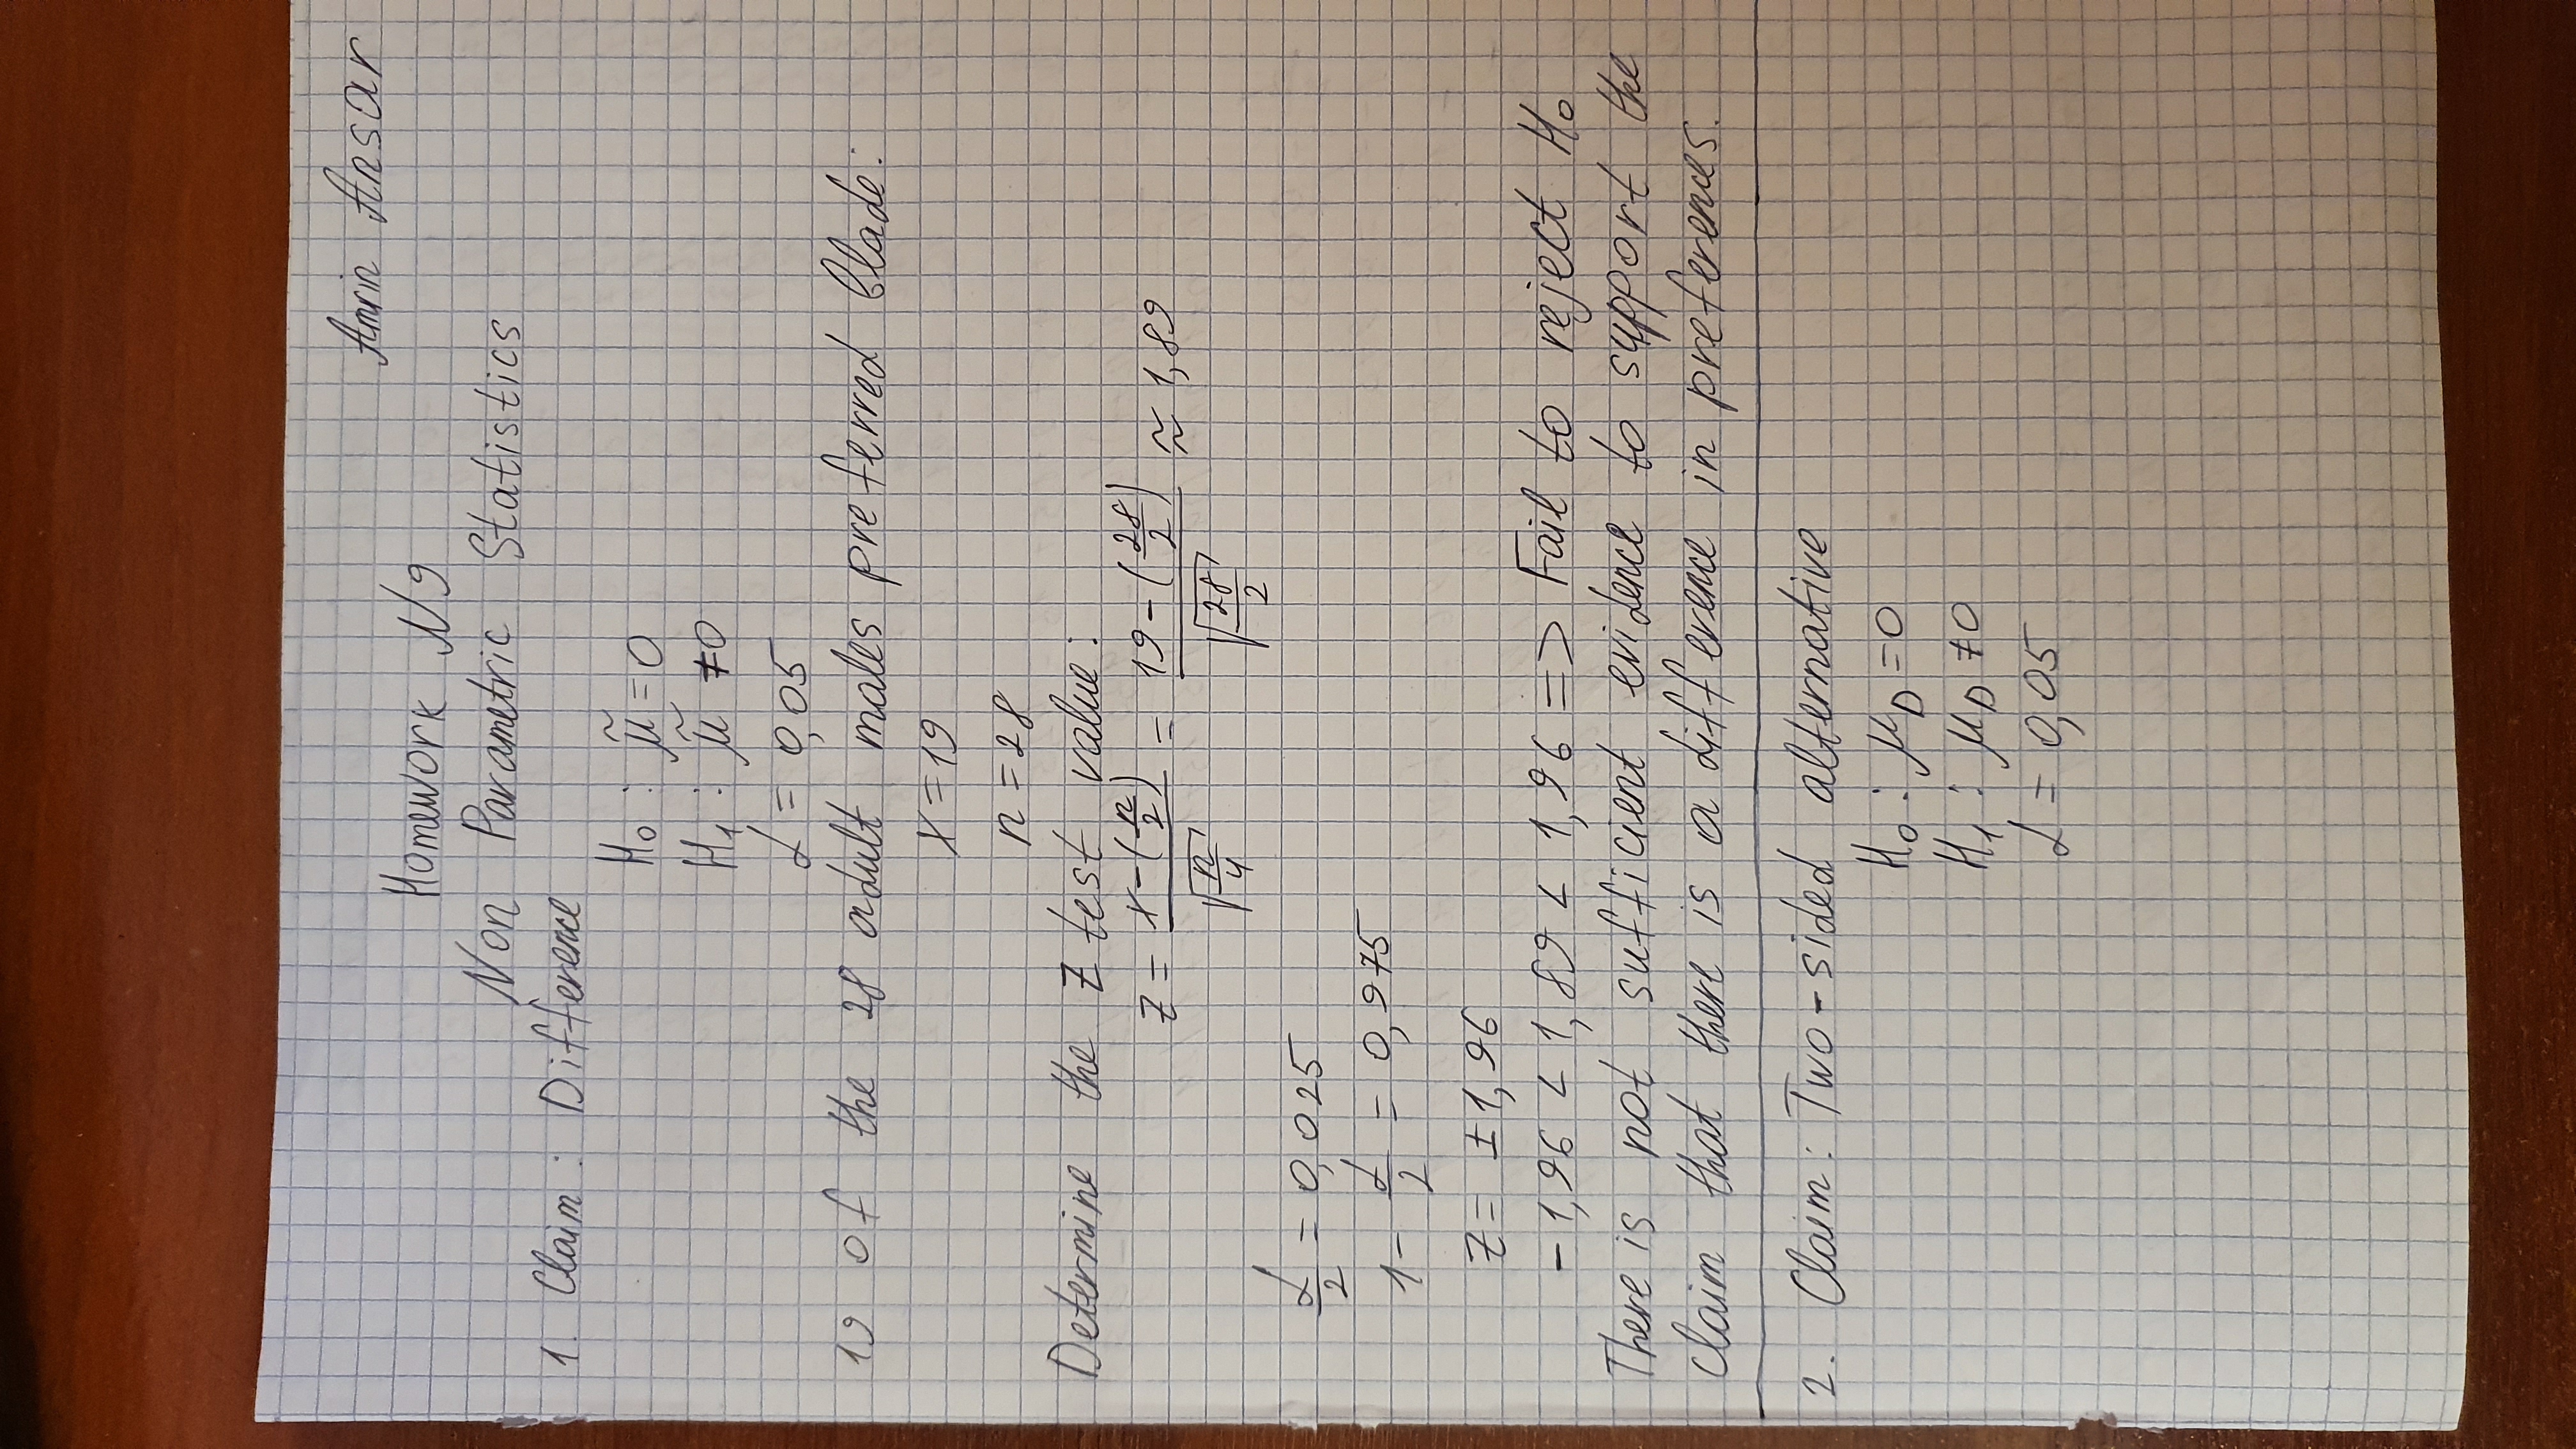 Amrin Ansar
Homework N9
Non Parametric Statistics
1. Claim: Difference
H₀ : μ̃ = 0
H₁ : μ̃ ≠ 0
α = 0,05
19 of the 28 adult males preferred blade:
X = 19
n = 28
Determine the z test value:
z = (x - (n/2)) / (√n/4) = (19 - (28/2)) / (√28/2) ≈ 1,89
α/2 = 0,025
1 - α/2 = 0,975
z = ±1,96
-1,96 < 1,89 < 1,96 => Fail to reject H₀
There is not sufficient evidence to support the
claim that there is a difference in preferences.
2. Claim: Two-sided alternative
H₀ : μ_D = 0
H₁ : μ_D ≠ 0
α = 0,05